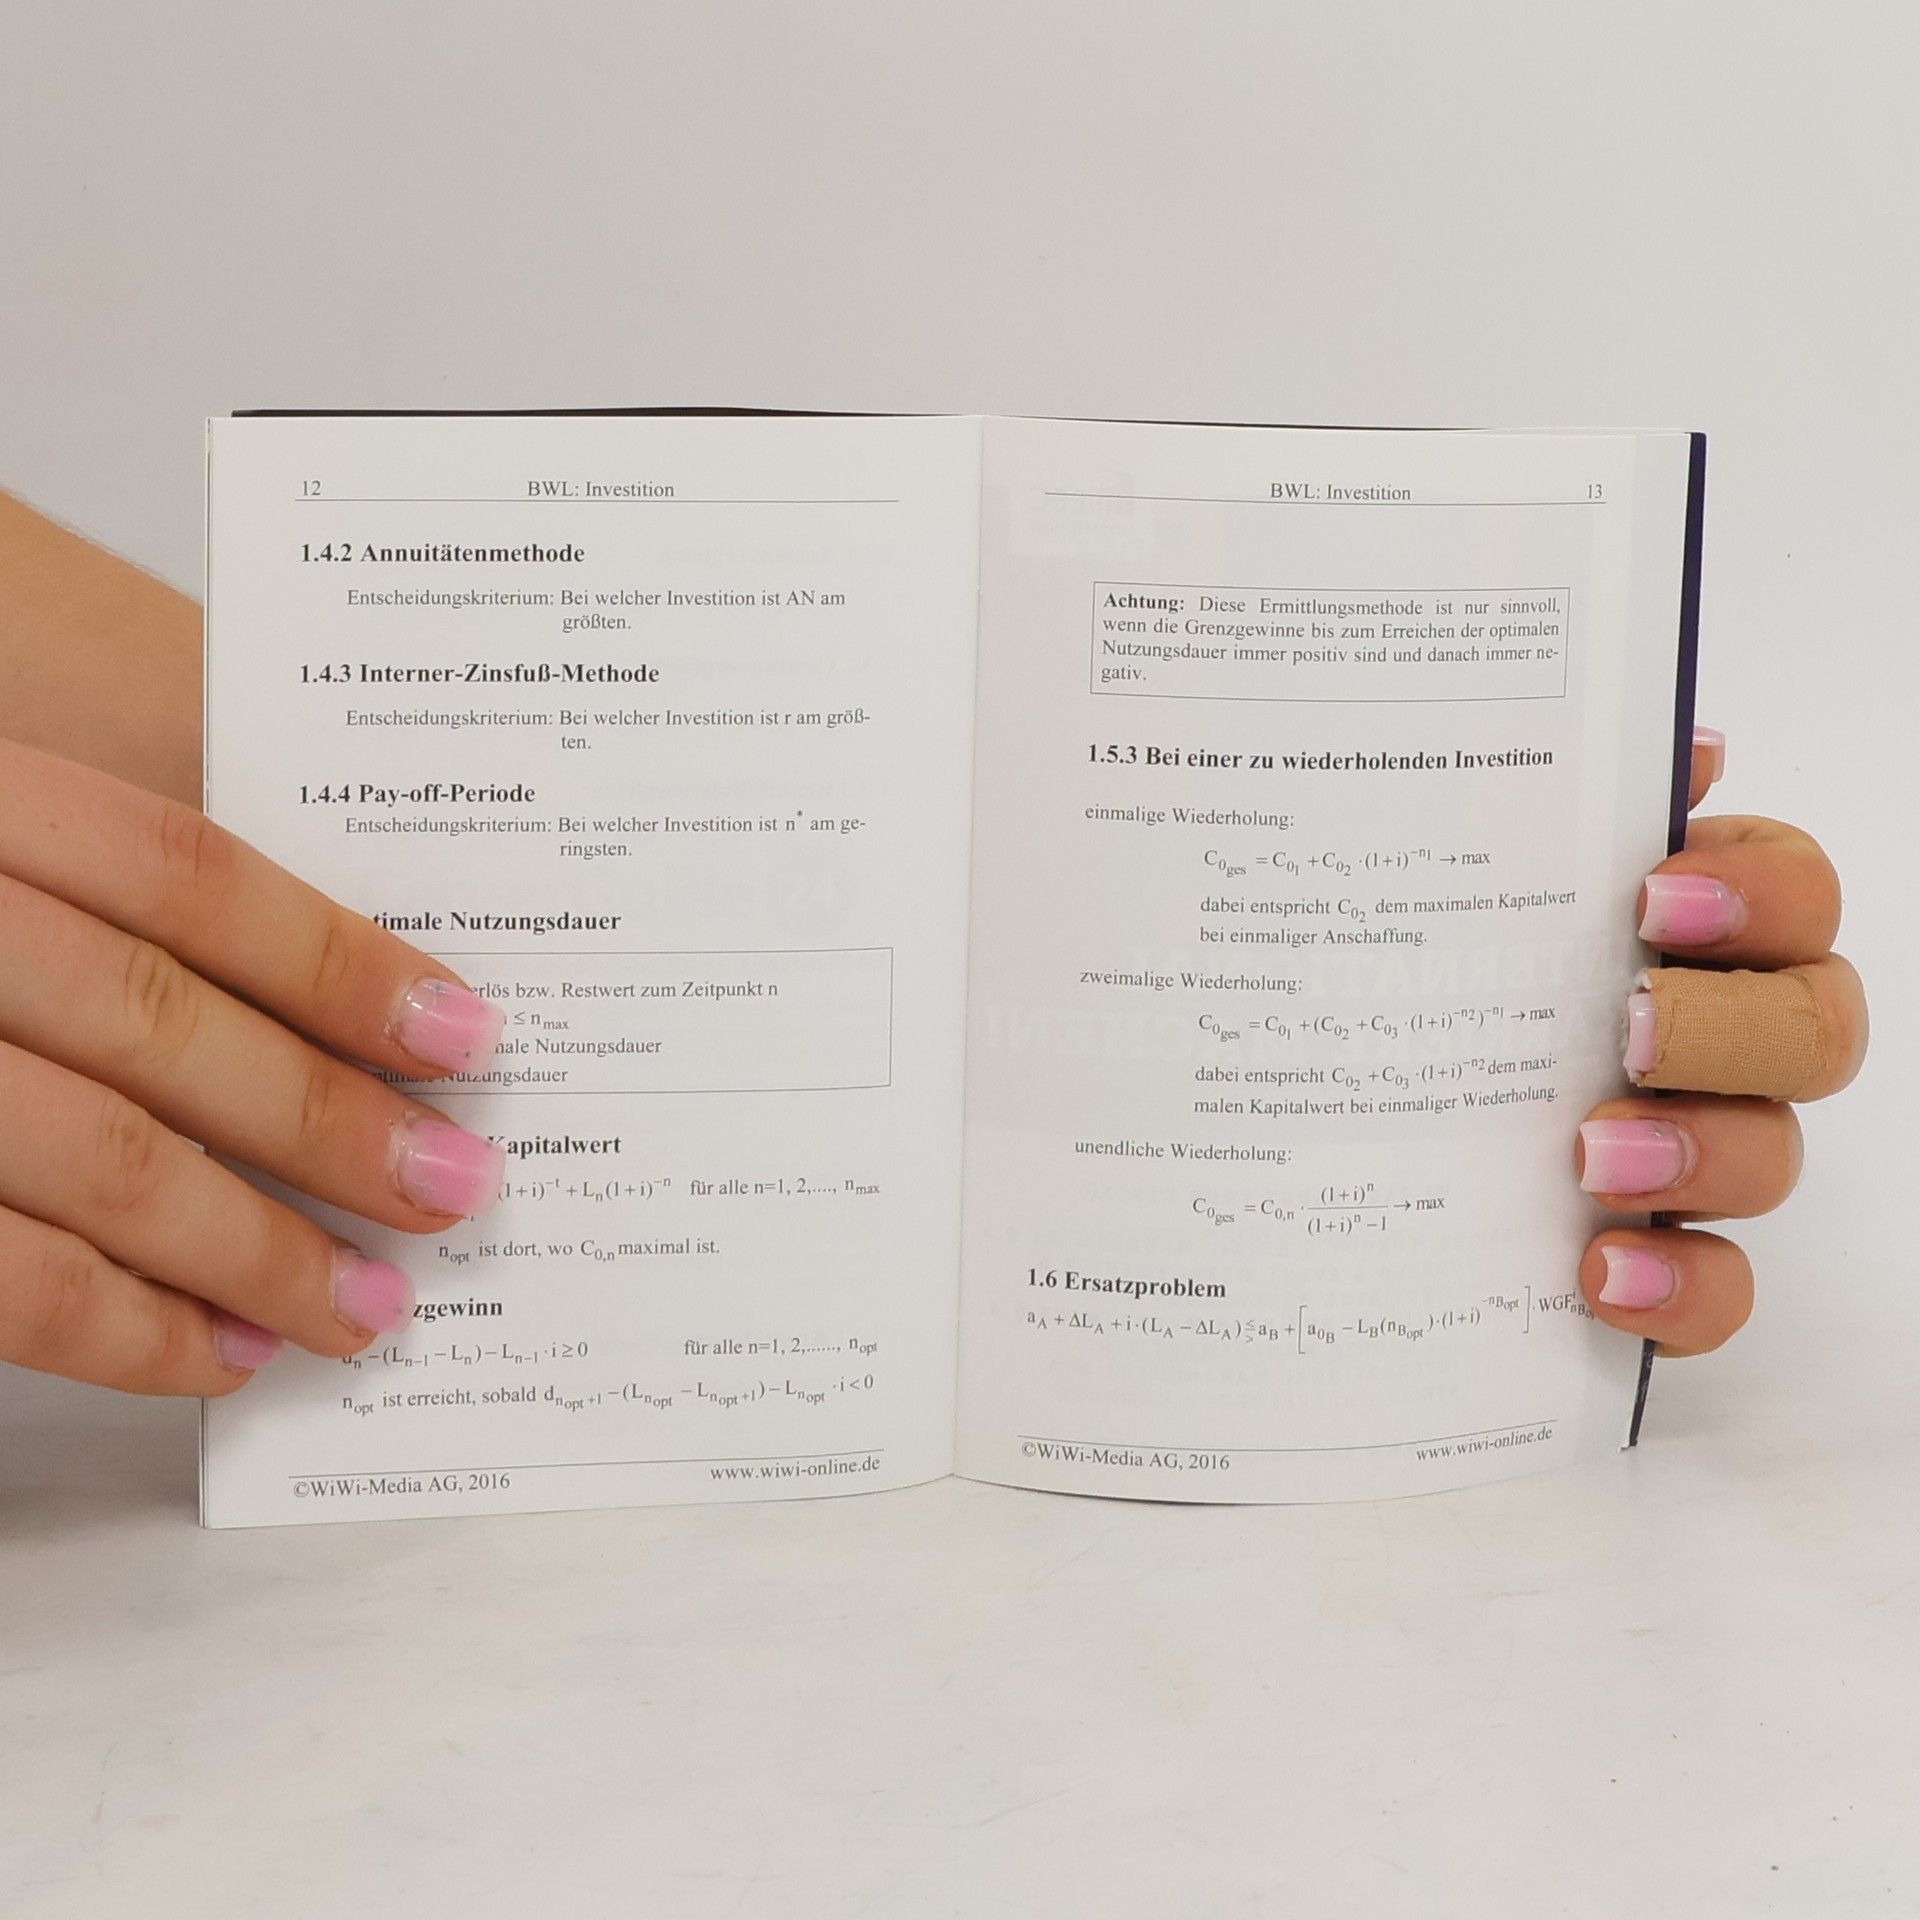 12 BWL: Investition
1.4.2 Annuitätenmethode
Entscheidungskriterium: Bei welcher Investition ist AN am
größten.
1.4.3 Interner-Zinsfuß-Methode
Entscheidungskriterium: Bei welcher Investition ist r am größ-
ten.
1.4.4 Pay-off-Periode
Entscheidungskriterium: Bei welcher Investition ist n* am ge-
ringsten.
timale Nutzungsdauer
erlös bzw. Restwert zum Zeitpunkt n
≤ n_max
male Nutzungsdauer
Nutzungsdauer
Kapitalwert
(1+i)^-t + L_n(1+i)^-n für alle n=1, 2,...., n_max
n_opt ist dort, wo C_0,n maximal ist.
zgewinn
d_n −(L_n−1 − L_n) − L_n−1 · i ≥ 0 für alle n=1, 2,......, n_opt
n_opt ist erreicht, sobald d_nopt+1 −(L_nopt − L_nopt+1) − L_nopt · i < 0
©WiWi-Media AG, 2016 www.wiwi-online.de
BWL: Investition 13
Achtung: Diese Ermittlungsmethode ist nur sinnvoll,
wenn die Grenzgewinne bis zum Erreichen der optimalen
Nutzungsdauer immer positiv sind und danach immer ne-
gativ.
1.5.3 Bei einer zu wiederholenden Investition
einmalige Wiederholung:
C_0ges = C_01 + C_02 · (1+i)^-n1 → max
dabei entspricht C_02 dem maximalen Kapitalwert
bei einmaliger Anschaffung.
zweimalige Wiederholung:
C_0ges = C_01 + (C_02 + C_03 · (1+i)^-n2)^-n1 → max
dabei entspricht C_02 + C_03 · (1+i)^-n2 dem maxi-
malen Kapitalwert bei einmaliger Wiederholung.
unendliche Wiederholung:
C_0ges = C_0,n · (1+i)^n / ((1+i)^n − 1) → max
1.6 Ersatzproblem
a_A + ΔL_A + i · (L_A − ΔL_A) ≤> a_B + [a_0B − L_B(n_Bopt) · (1+i)^-nBopt] · WGF
©WiWi-Media AG, 2016 www.wiwi-online.de